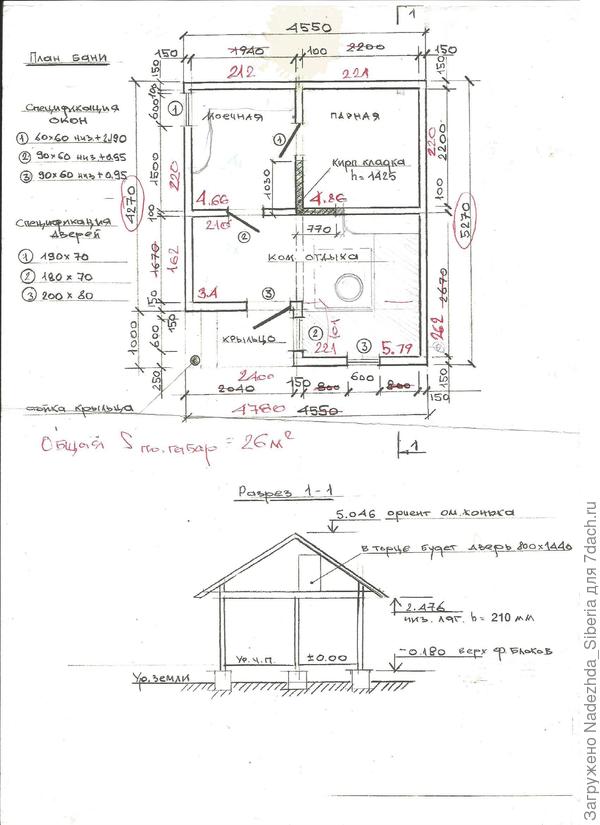 План бани
Спецификация
окон
1 60х60 низ+2.190
2 90х60 низ+0.95
3 90х60 низ+0.95
Спецификация
дверей
1 190×70
2 180×70
3 200×80
4550
150
1940
100
2200
150
212
221
1
150
600
1500
100
1670
150
600
250
150
1000
4270
220
162
150
2200
100
2670
150
5270
220
262
1
моечная
парная
1
кирп кладка
h=1425
1030
4.66
4.86
210
2
770
ком. отдыха
3.4
3
крыльцо
2
101
221
3
5.79
2400
2040
150
800
600
800
150
4780
4550
стойка крыльца
1
Общая S по габар = 26 м²
Разрез 1-1
5.046 ориент от. конька
в торце будет дверь 800×1440
2.476
низ. ляг. b= 210 мм
ур. ч.п.
±0.00
-0.180 верх ф. блоков
Ур. земли
Загружено Nadezhda_Siberia для 7dach.ru